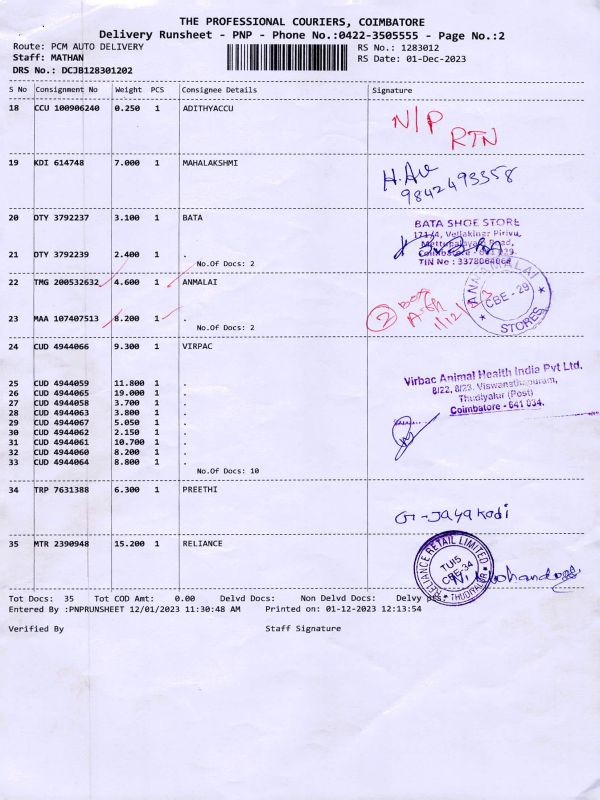 THE PROFESSIONAL COURIERS, COIMBATORE
Delivery Runsheet - PNP - Phone No.:0422-3505555 - Page No.:2
Route: PCM AUTO DELIVERY RS No.: 1283012
Staff: MATHAN RS Date: 01-Dec-2023
DRS No.: DCJB128301202
S No Consignment No Weight PCS Consignee Details Signature
18 CCU 100906240 0.250 1 ADITHYACCU
N/P
RTN
19 KDI 614748 7.000 1 MAHALAKSHMI
9842493558
20 DTY 3792237 3.100 1 BATA
BATA SHOE STORE
171/4, Vellakinar Pirivu,
Mettupalayam Road,
Coimbatore - 641 029
21 DTY 3792239 2.400 1 .
No.Of Docs: 2
22 TMG 200532632 4.600 1 ANMALAI
ANNAMALAI
CBE - 29
STORES
2 Box
23 MAA 107407513 8.200 1 .
No.Of Docs: 2
24 CUD 4944066 9.300 1 VIRPAC
Virbac Animal Health India Pvt Ltd.
8/22, 8/23, Viswanathapuram,
Thudiyalur (Post)
Coimbatore - 641 034.
25 CUD 4944059 11.800 1 .
26 CUD 4944065 19.000 1 .
27 CUD 4944058 3.700 1 .
28 CUD 4944063 3.800 1 .
29 CUD 4944067 5.050 1 .
30 CUD 4944062 2.150 1 .
31 CUD 4944061 10.700 1 .
32 CUD 4944060 8.200 1 .
33 CUD 4944064 8.800 1 .
No.Of Docs: 10
34 TRP 7631388 6.300 1 PREETHI
G-Jayakodi
35 MTR 2390948 15.200 1 RELIANCE
RELIANCE RETAIL LIMITED
TU15
CBE-34
THUDIYALUR
Tot Docs: 35 Tot COD Amt: 0.00 Delvd Docs: Non Delvd Docs: Delvy pts:
Entered By :PNPRUNSHEET 12/01/2023 11:30:48 AM Printed on: 01-12-2023 12:13:54
Verified By Staff Signature